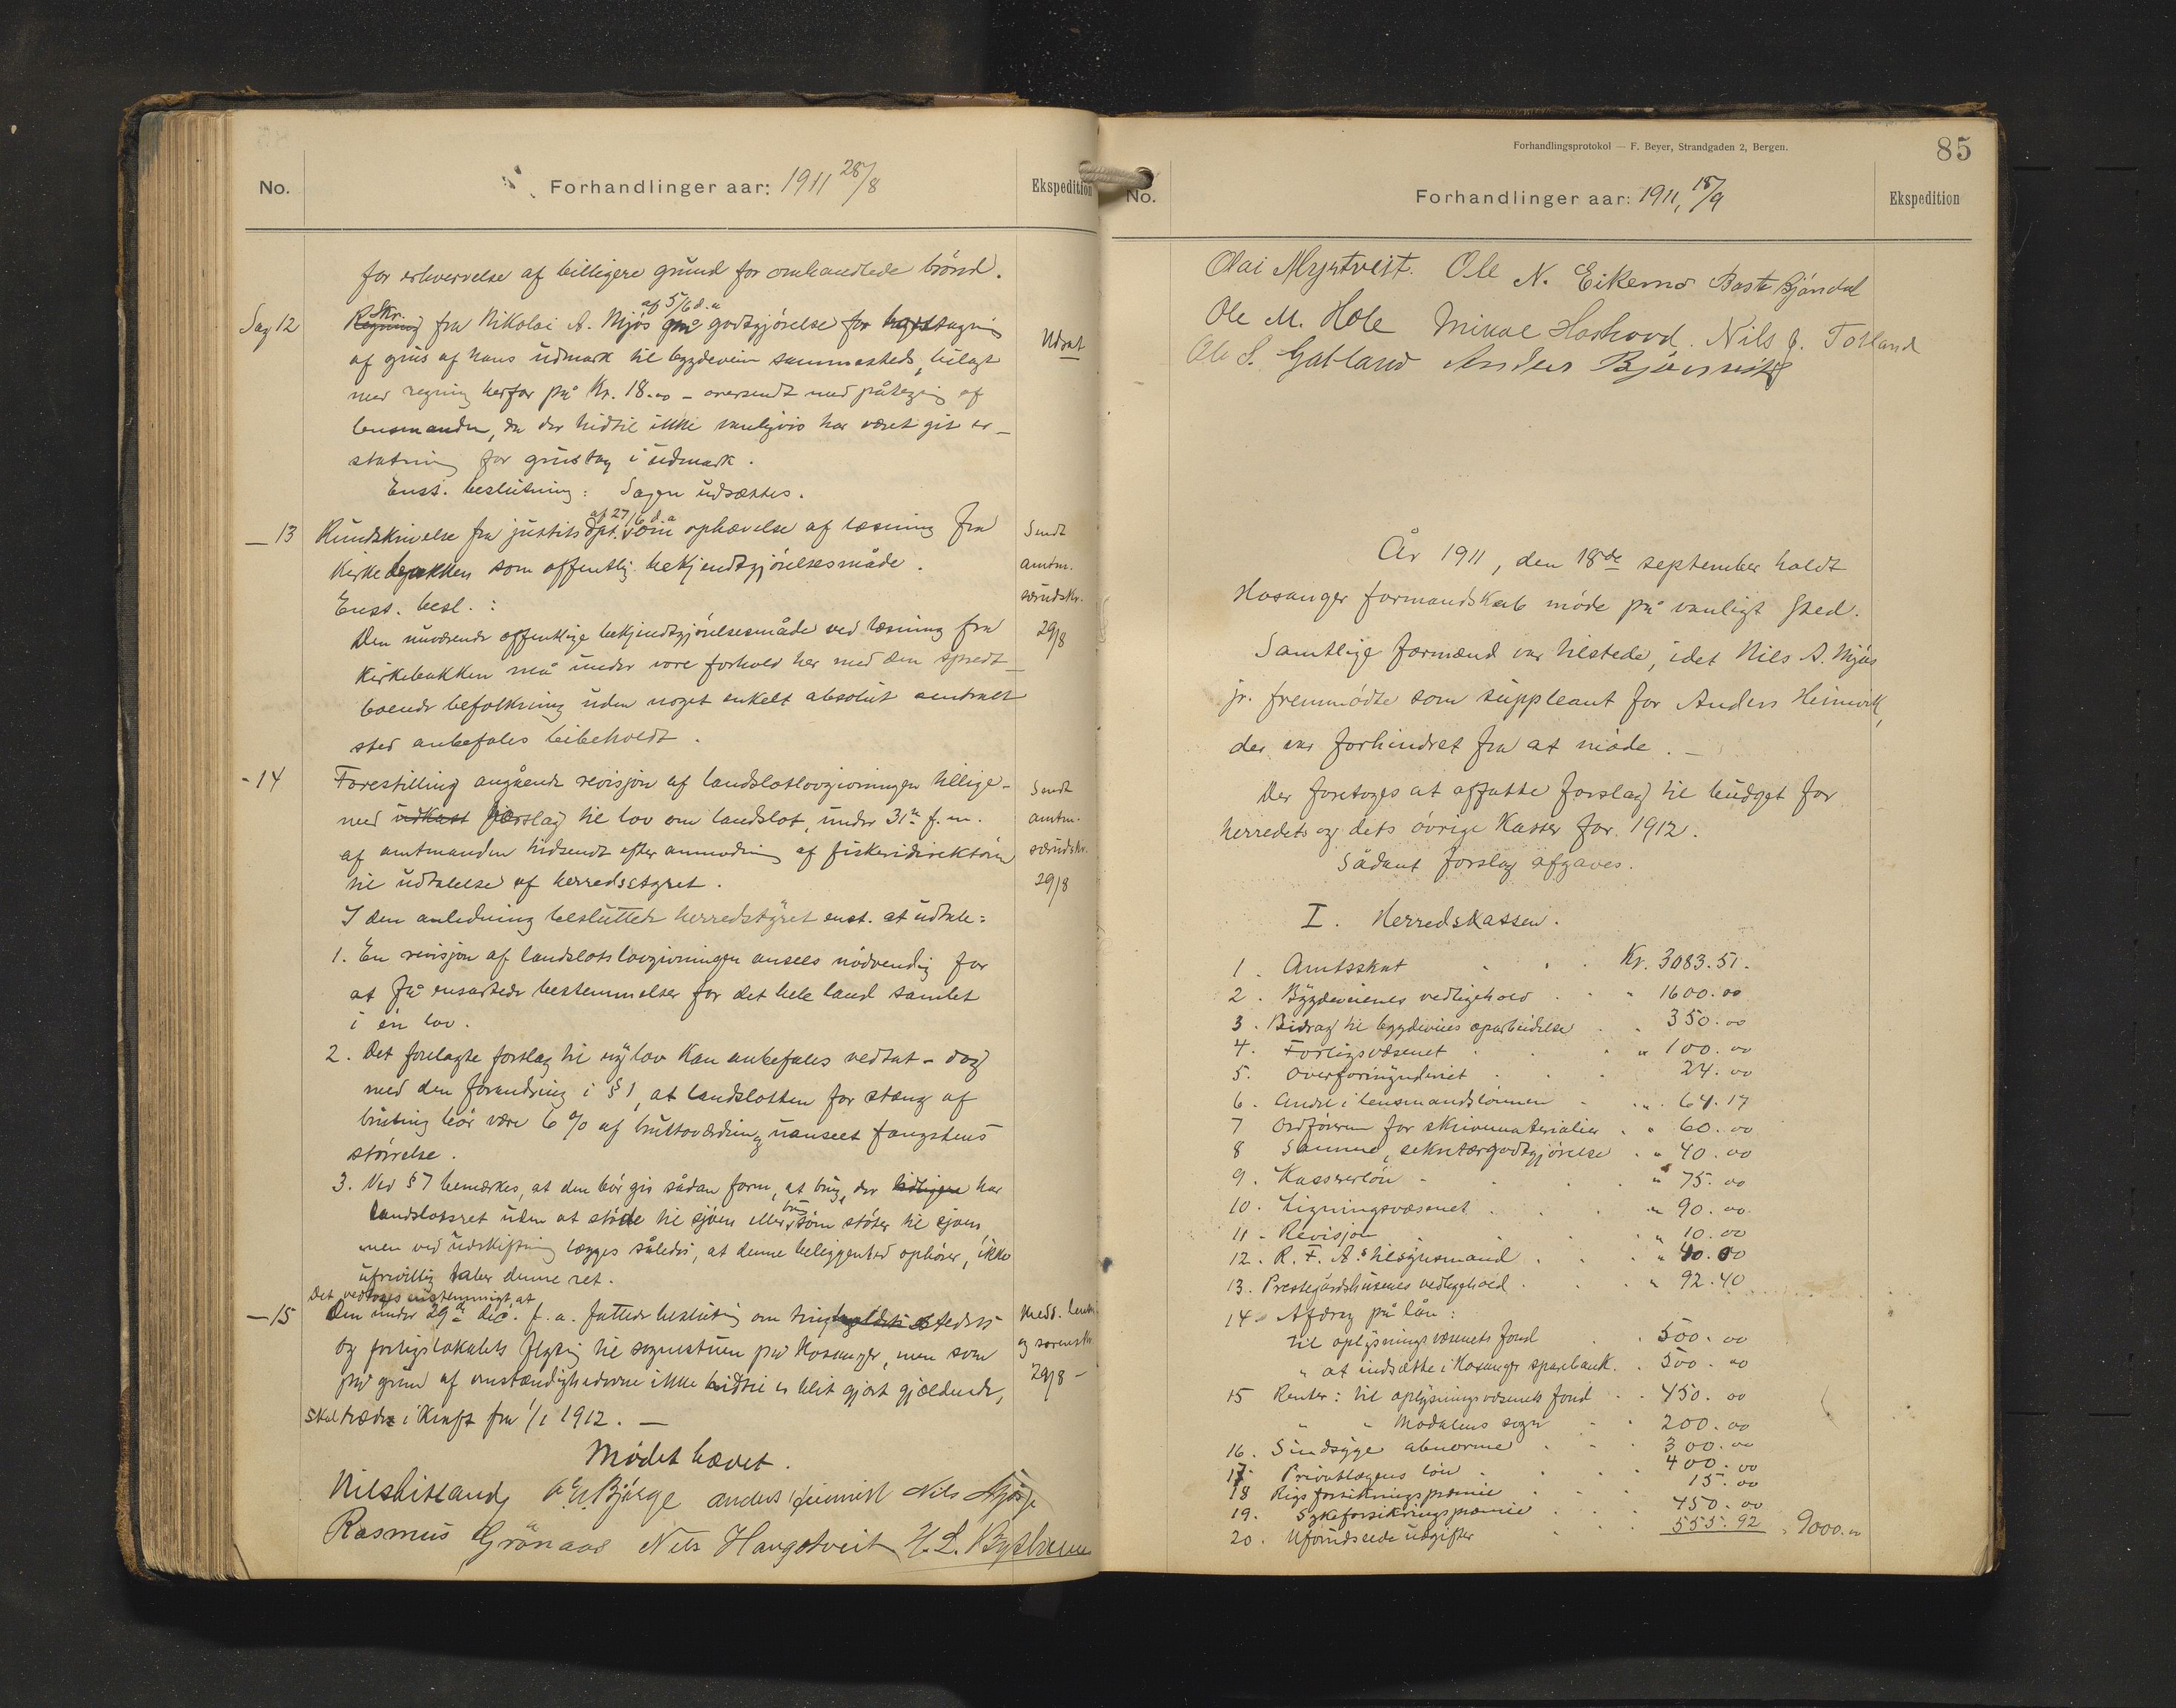 No. Forhandlinger aar: 1911 28/8 Ekspedition
for erhvervelse af billigere grund for omhandlede brönd.
Sag 12 Skr. af 5/6 d.a. fra Nikolai A. Mjös godtgjörelse for
af grus af hans udmark til bygdeveien sammesteds, bilagt Udsat
med regning herfor på Kr. 18.00 – oversendt med påtegning af
lensmanden, da der hidtil ikke vanligvis har været git er-
statning for grustag i udmark.
Enst. beslutning: Sagen udsættes.
— 13 Rundskrivelse fra justitsdpt. af 27/6 d.a. om ophævelse af læsning fra Sendt
Kirkebakken som offentlig bekjendtgjörelsesmåde. amtm.
Enst. besl.: særudskr.
Den nuværende offentlige bekjendtgjörelsesmåde ved læsning fra 29/8
Kirkebakken må under vore forhold her med den spredt-
boende befolkning uden noget enkelt absolut sentralt
sted anbefales beibeholdt.
- 14 Forestilling angående revisjon af landslotlovgivningen tillige- Sendt
med udkast forslag til lov om landslot, under 31te f.m. amtm.
af amtmanden hidsendt efter anmodning af fiskeridirektören særudskr.
til udtalelse af herredsstyret. 29/8
I den anledning besluttede herredstyret enst. at udtale:
1. En revisjon af landslotslovgivningen ansees nödvendig for
at få ensartede bestemmelser for det hele land samlet
i én lov.
2. Det forelagte forslag til ny lov kan anbefales vedtat – dog
med den forandring i § 1, at landslotten for stæng af
brisling bör være 6 % af bruttoværdien, uanseet fangstens
störrelse.
3. Ved § 7 bemærkes, at den bör gis sådan form, at brug, der har
landslotsret uden at stöde til sjöen eller brug som stöter til sjöen,
men ved udskiftning lægges således, at denne beliggenhed ophörer, ikke
ufrivillig taber denne ret.
Det vedtoges enstemmigt, at
— 15 Den under 29de dec. f.a. fattede beslutning om tingstedets Medd. lensm.
og forligslokalets flytning til sognestuen på Hosanger, men som og sorenskr.
på grund af omstændighederne ikke hidtil er blit gjort gjældende, 29/8 –
skal træde i kraft fra 1/1 1912. —
Mödet hævet.
Nils Litland Bjørge Anders Heimvik Nils Mjøs jr
Rasmus Grönaas Nils Haugstveit
Forhandlingsprotokol — F. Beyer, Strandgaden 2, Bergen. 85
No. Forhandlinger aar: 1911, 18/9 Ekspedition
Olai Myrtveit. Ole N. Eikemo Baste Bjöndal
Ole M. Hole Mikal Nils J. Totland
Ole S. Gatland Anders Bjørnevik
År 1911, den 18de september holdt
Hosanger formandskab möde på vanligt sted.
Samtlige formænd var tilstede, idet Nils A. Mjös
jr. fremmödte som suppleant for Anders Heimvik,
der var forhindret fra at möde. —
Der foretoges at affatte forslag til budget for
herredets og dets övrige kasser for 1912.
Sådant forslag afgaves.
I. Herredskassen.
1. Amtsskat Kr. 3083.51.
2. Bygdeveienes vedligehold " 1600.00
3. Bidrag til bygdeveies oparbeidelse " 350.00
4. Forligsvæsenet " 100.00
5. Overformynderiet 24.00
6. Andel i lensmandslönnen " 64.17
7 Ordföreren for skrivematerialier " 60.00
8 Samme, sekretærgodtgjörelse " 40.00
9. Kassererlön " 75.00
10. Ligningsvæsenet " 90.00
11 - Revisjon " 10.00
12. R. F. A.s tilsynsmand " 40.00
13. Prestegårdshusenes vedligehold " 92.40
14 - Afdrag på lån:
til oplysningsvæsenets fond 500.00
" at indsætte i Hosanger sparebank 500.00
15 Renter: til oplysningsvæsenets fond 450.00
" " Modalens sogn 200.00
16. Sindsyge abnorme 300.00
17. Privatlægens lön 400.00
18 Rigsforsikringspræmie 15.00
19. Sykeforsikringspræmie 450.00
20. Uforudseede udgifter 555.92 " 9000.00